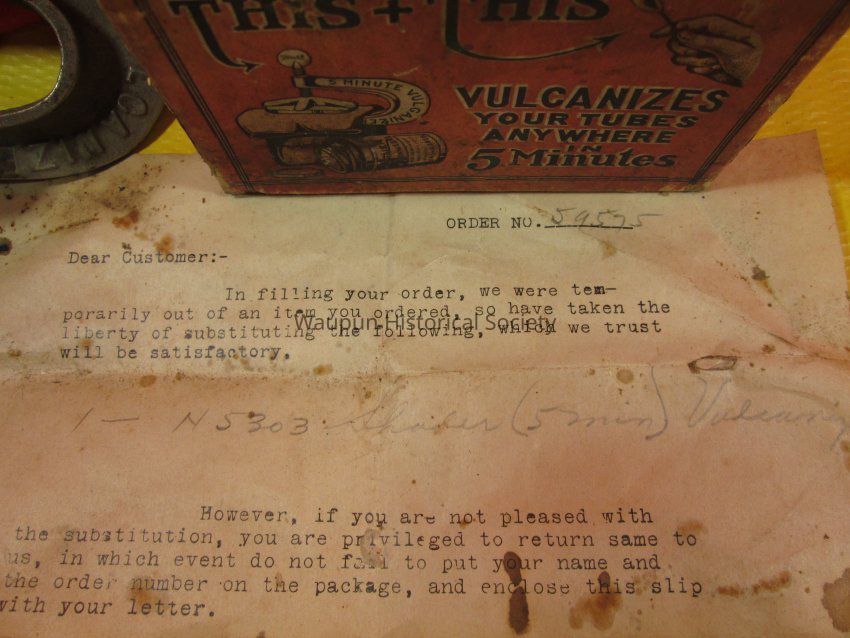 THIS + THIS
5 MINUTE VULCANIZER
VULCANIZES
YOUR TUBES
ANYWHERE
IN
5 Minutes
ORDER NO. 59575
Dear Customer:-
In filling your order, we were tem-
porarily out of an item you ordered, so have taken the
liberty of substituting the following, which we trust
will be satisfactory.
Waupun Historical Society
1 - N5303 Shaler (5 min)
However, if you are not pleased with
the substitution, you are privileged to return same to
us, in which event do not fail to put your name and
the order number on the package, and enclose this slip
with your letter.